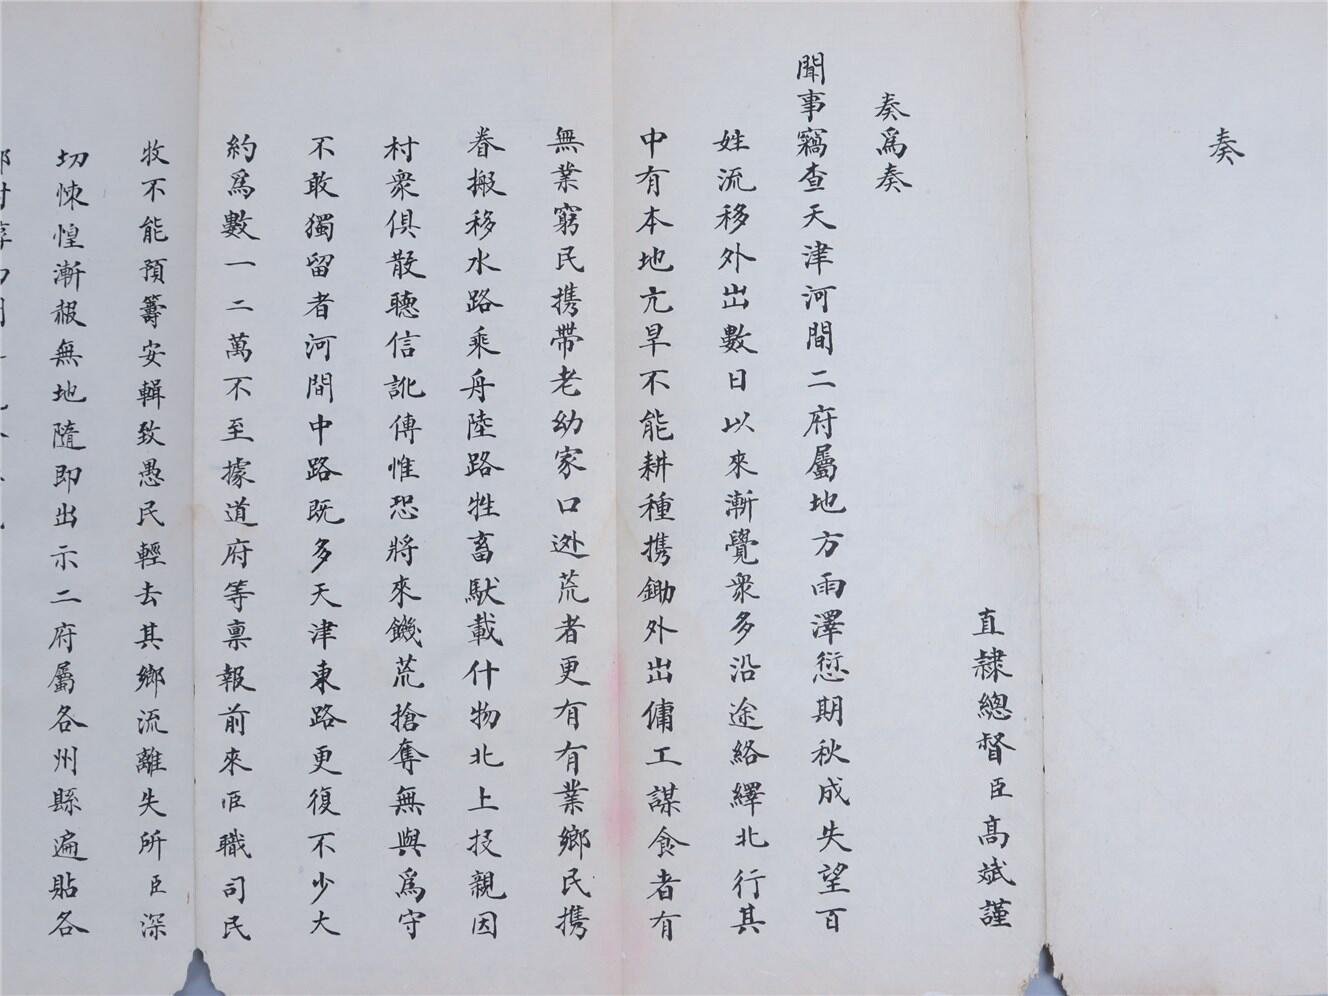 奏
直隸總督臣高斌謹
奏爲奏
聞事竊查天津河間二府屬地方雨澤愆期秋成失望百
姓流移外出數日以來漸覺衆多沿途絡繹北行其
中有本地亢旱不能耕種携鋤外出傭工謀食者有
無業窮民携帶老幼家口逃荒者更有有業鄉民携
眷搬移水路乘舟陸路牲畜馱載什物北上投親因
村衆俱散聽信訛傳惟恐將來饑荒搶奪無與爲守
不敢獨留者河間中路既多天津東路更復不少大
約爲數一二萬不至據道府等稟報前來臣職司民
牧不能預籌安輯致愚民輕去其鄉流離失所臣深
切悚惶漸赧無地隨即出示二府屬各州縣遍貼各